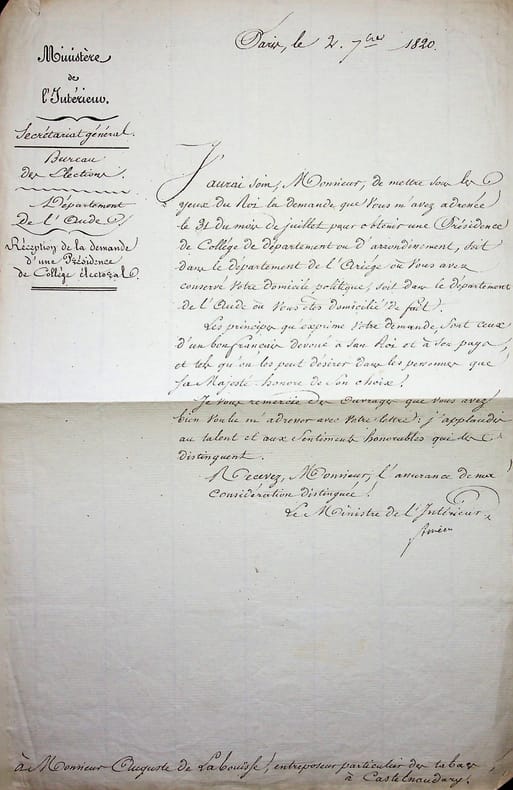 Paris, le 2. 7bre 1820.
Ministère
de
l'Intérieur.
Secrétariat général.
Bureau
des Elections.
Département
de l'Aude.
Réception de la demande
d'une Présidence
de Collège électoral.
J'aurai soin, Monsieur, de mettre sous les
yeux du Roi la demande que vous m'avez adressée
le 31 du mois de juillet pour obtenir une Présidence
de Collège de département ou d'arrondissement, soit
dans le département de l'Ariége où vous avez
conservé votre domicile politique, soit dans le département
de l'Aude où vous êtes domicilié de fait.
Les principes qu'exprime votre demande, sont ceux
d'un bon français dévoué à son Roi et à son pays,
et tels qu'on les peut désirer dans les personnes que
Sa Majesté honore de son choix.
Je vous remercie des ouvrages que vous avez
bien voulu m'adresser avec votre lettre : j'applaudis
au talent et aux sentimens honorables qui les
distinguent.
Recevez, Monsieur, l'assurance de ma
considération distinguée.
Le Ministre de l'Intérieur,
Siméon
à Monsieur Auguste de Labouisse, entreposeur particulier des tabacs
à Castelnaudary.